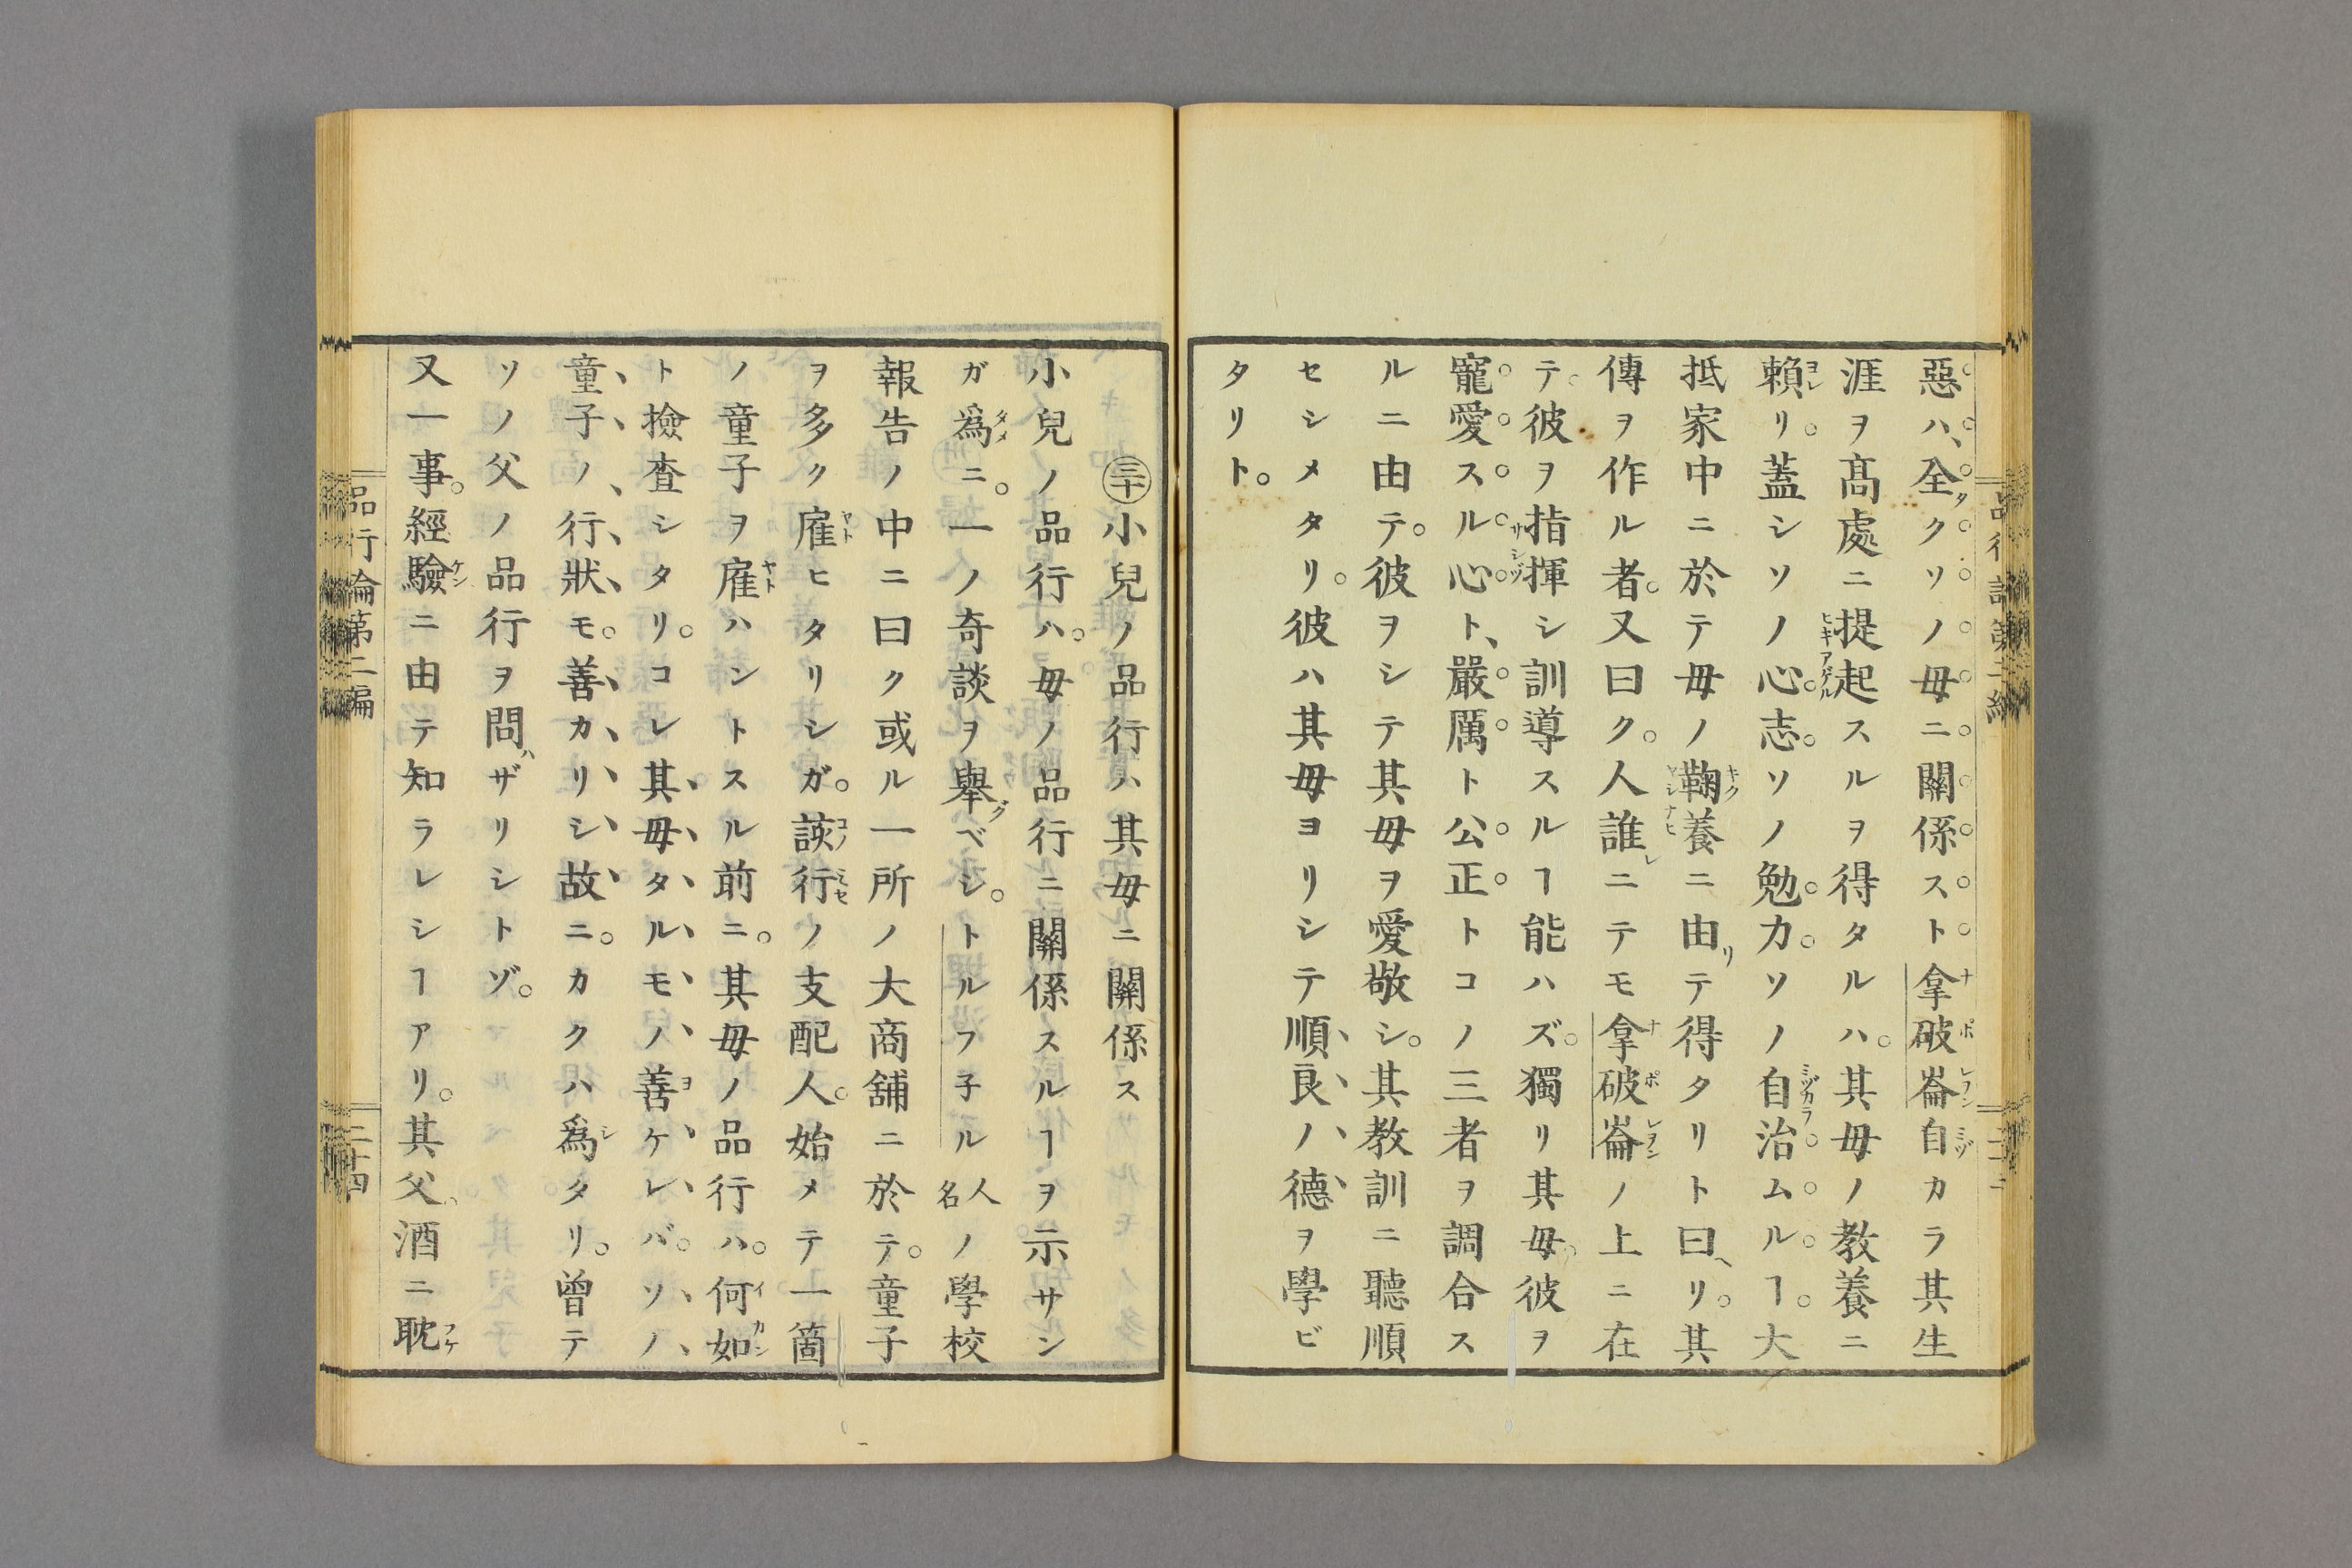 惡ハ、全クソノ母ニ關係スト拿破崙自カラ其生
涯ヲ髙處ニ提起スルヲ得タルハ。其母ノ教養ニ
賴リ。蓋シソノ心志。ソノ勉力。ソノ自治ムルヿ。大
抵家中ニ於テ母ノ鞠養ニ由テ得タリト曰リ。其
傳ヲ作ル者。又曰ク。人誰ニテモ拿破崙ノ上ニ在
テ。彼ヲ指揮シ訓導スルヿ能ハズ。獨リ其母。彼ヲ
寵愛スル心ト、嚴厲ト公正トコノ三者ヲ調合ス
ルニ由テ。彼ヲシテ其母ヲ愛敬シ。其教訓ニ聽順
セシメタリ。彼ハ其母ヨリシテ順良ノ德ヲ學ビ
タリト。
㉚小兒ノ品行ハ其母ニ關係ス
小兒ノ品行ハ。母ノ品行ニ關係スルヿヲ示サン
ガ爲ニ。一ノ奇談ヲ擧ベシ。トルフ子ル人名ノ學校
報告ノ中ニ曰ク或ル一所ノ大商舗ニ於テ。童子
ヲ多ク雇ヒタリシガ。該行ノ支配人。始メテ一箇
ノ童子ヲ雇ハントスル前ニ。其母ノ品行ハ。何如
ト撿査シタリ。コレ其母タルモノ善ケレバ。ソノ
童子ノ行狀モ。善カリシ故ニ。カクハ爲タリ。曾テ
ソノ父ノ品行ヲ問ザリシトゾ。
又一事。經驗ニ由テ知ラレシヿアリ。其父酒ニ耽
品行論第二編
二十四